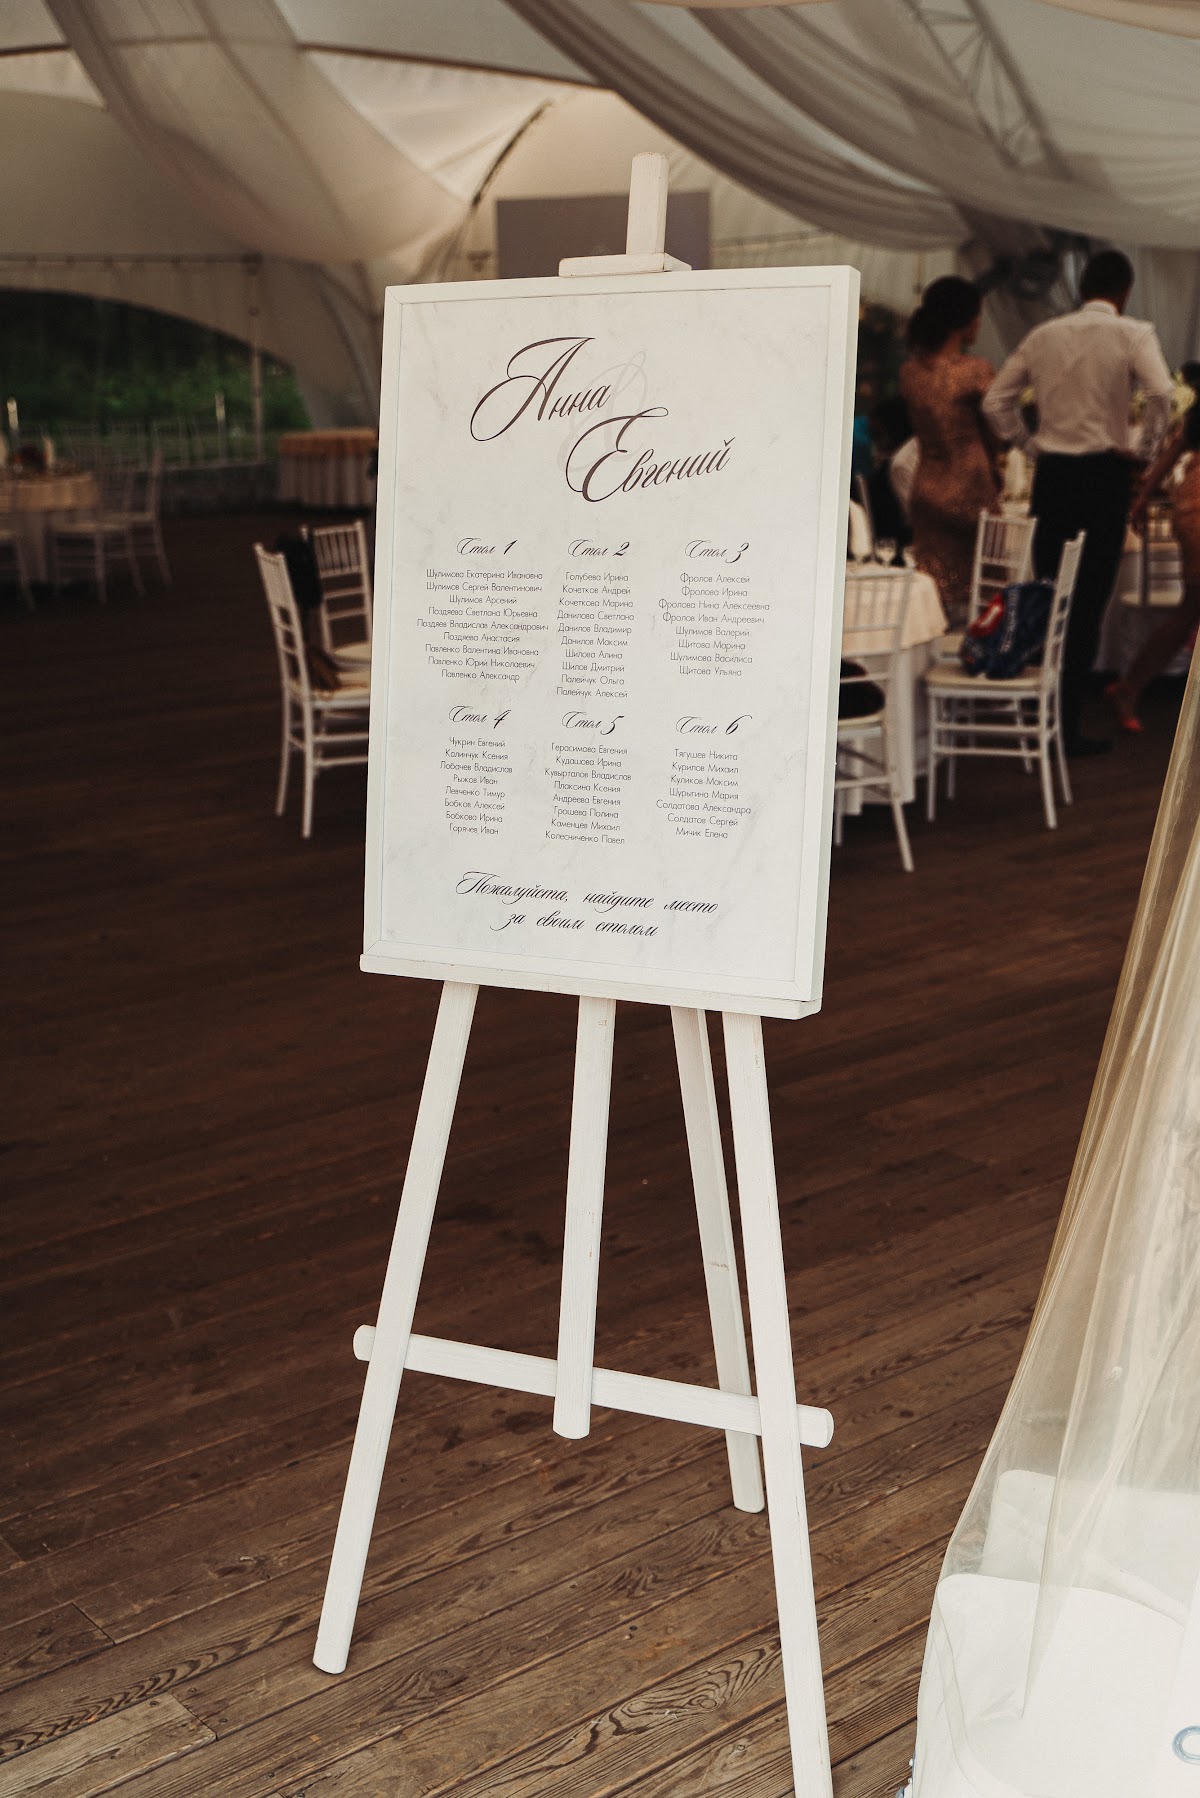 Анна
&
Евгений
Стол 1
Шулимова Екатерина Ивановна
Шулимов Сергей Валентинович
Шулимов Арсений
Поздяева Светлана Юрьевна
Поздяев Владислав Александрович
Поздяева Анастасия
Павленко Валентина Ивановна
Павленко Юрий Николаевич
Павленко Александр
Стол 2
Голубева Ирина
Кочетков Андрей
Кочеткова Марина
Данилова Светлана
Данилов Владимир
Данилов Максим
Шилова Алина
Шилов Дмитрий
Палейчук Ольга
Палейчук Алексей
Стол 3
Фролов Алексей
Фролова Ирина
Фролова Нина Алексеевна
Фролов Иван Андреевич
Шулимов Валерий
Щитова Марина
Шулимова Василиса
Щитова Ульяна
Стол 4
Чукрин Евгений
Калинчук Ксения
Лобачев Владислав
Рыжов Иван
Левченко Тимур
Бобков Алексей
Бобкова Ирина
Горячев Иван
Стол 5
Герасимова Евгения
Кудашова Ирина
Кувырталов Владислав
Плаксина Ксения
Андреева Евгения
Грошева Полина
Каменцев Михаил
Колесниченко Павел
Стол 6
Тягушев Никита
Курилов Михаил
Куликов Максим
Шурыгина Мария
Солдатова Александра
Солдатов Сергей
Мичик Елена
Пожалуйста, найдите место
за своим столом